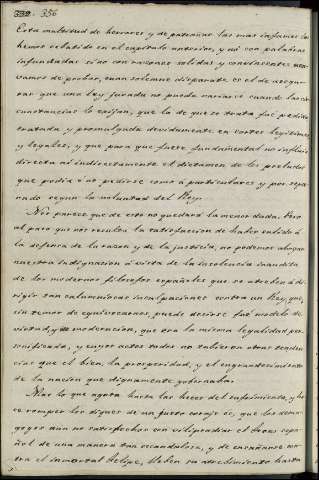 332. 356
Esta multitud de horrores y de patrañas las mas infames las
hemos rebatido en el capitulo anterior, y no con palabras
infundadas sino con razones solidas y convincentes aca-
vamos de probar, cuan solemne disparate es el de asegu-
rar que una ley jurada no pueda variarse cuando las cir-
cunstancias lo exijan, que la de que se trata fué pedida
tratada y promulgada devidamente en cortes legitimas
y legales, y que para que fuese fundamental no influia
directa ni indirectamente el dictamen de los prelados
que podia ó no pedirse como á particulares y por sepa-
rado segun la voluntad del Rey.
Nos parece que de esto no quedará la menor duda. Pero
al paso que nos resulta la satisfaccion de haber salido á
la defensa de la razon y de la justicia, no podemos ahogar
nuestra indignacion á vista de la insolencia inaudita
de los modernos filosofos españoles que se atreben á di-
rigir tan calumniosas inculpaciones contra un Rey, que,
sin temor de equivocarnos, puede decirse fué modelo de
virtud, y de moderacion, que era la misma legalidad per-
sonificada, y cuyos actos todos no tubieron otras tenden-
cias que el bien, la prosperidad, y el engrandecimiento
de la nacion que dignamente gobernaba.
Mas lo que apura hasta las heces del sufrimiento, y ha-
ce romper los diques de un justo coraje es, que los dema-
gogos aun no satisfechos con vilipendiar el trono espa-
ñol de una manera tan escandalosa, y de ensañarse con-
tra el inmortal Felipe, lleben su atrebimiento hasta